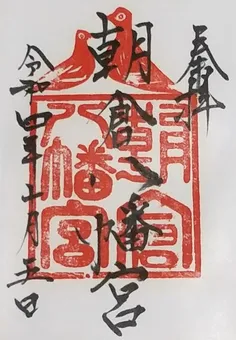 奉拝
朝倉八幡宮
令和四年十月五日
朝倉
八幡宮